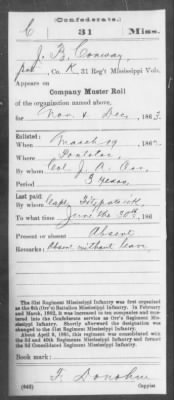 (Confederate.)
C 31 Miss.
J. B. Conway
Pvt, Co. K, 31 Reg't Mississippi Vols.
Appears on
Company Muster Roll
of the organization named above,
for Nov & Dec, 1863.
Enlisted:
When March 19, 186
Where Pontotoc
By whom Col. J. A. Orr
Period 3 years
Last paid:
By whom Capt. Fitzpatrick
To what time June the 30th, 186
Present or absent Absent
Remarks: Absent without leave
The 31st Regiment Mississippi Infantry was first organized
as the 6th (Orr's) Battalion Mississippi Infantry. In February
and March, 1862, it was increased to ten companies and mus-
tered into the Confederate service as Orr's Regiment Mis-
sissippi Infantry. Shortly afterward the designation was
changed to the 31st Regiment Mississippi Infantry.
About April 9, 1865, this regiment was consolidated with
the 3d and 40th Regiments Mississippi Infantry and formed
the 3d Consolidated Regiment Mississippi Infantry.
Book mark:
F. Donohue
(642) Copyist.